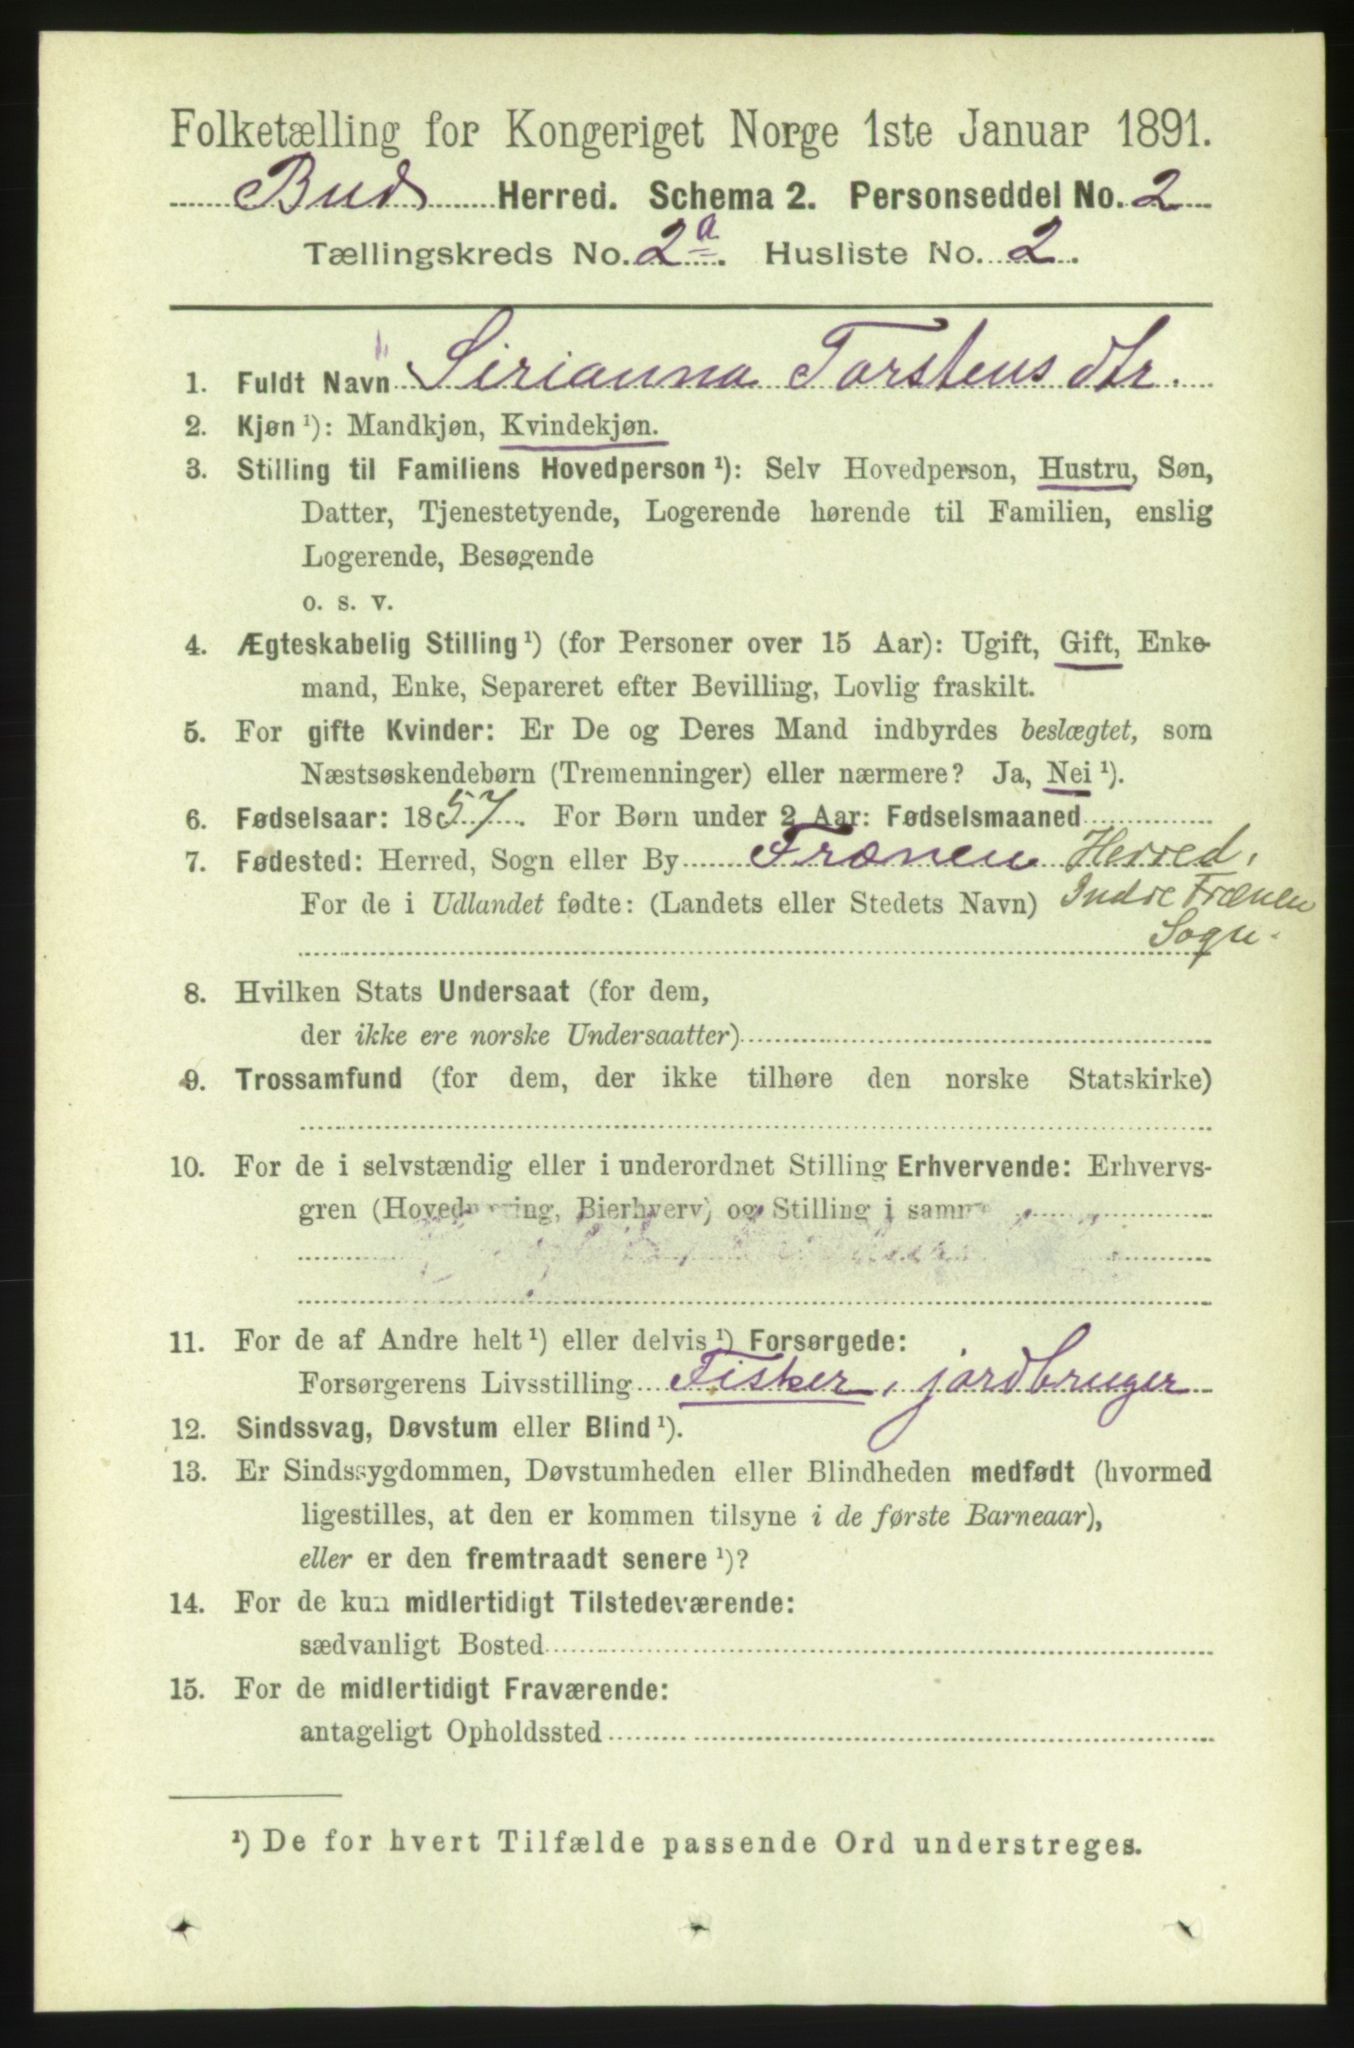 Folketælling for Kongeriget Norge 1ste Januar 1891.
Bud Herred. Schema 2. Personseddel No. 2
Tællingskreds No. 2a. Husliste No. 2.
1. Fuldt Navn Sirianna Torstensdtr.
2. Kjøn ¹): Mandkjøn, Kvindekjøn.
3. Stilling til Familiens Hovedperson ¹): Selv Hovedperson, Hustru, Søn,
Datter, Tjenestetyende, Logerende hørende til Familien, enslig
Logerende, Besøgende
o. s. v.
4. Ægteskabelig Stilling ¹) (for Personer over 15 Aar): Ugift, Gift, Enke-
mand, Enke, Separeret efter Bevilling, Lovlig fraskilt.
5. For gifte Kvinder: Er De og Deres Mand indbyrdes beslægtet, som
Næstsøskendebørn (Tremenninger) eller nærmere? Ja, Nei ¹).
6. Fødselsaar: 1857. For Børn under 2 Aar: Fødselsmaaned
7. Fødested: Herred, Sogn eller By Frænen Herred,
For de i Udlandet fødte: (Landets eller Stedets Navn) Indre Frænen
Sogn.
8. Hvilken Stats Undersaat (for dem,
der ikke ere norske Undersaatter)
9. Trossamfund (for dem, der ikke tilhøre den norske Statskirke)
10. For de i selvstændig eller i underordnet Stilling Erhvervende: Erhvervs-
gren (Hovednæring, Bierhverv) og Stilling i samme
11. For de af Andre helt ¹) eller delvis ¹) Forsørgede:
Forsørgerens Livsstilling Fisker, jordbruger
12. Sindssvag, Døvstum eller Blind ¹).
13. Er Sindssygdommen, Døvstumheden eller Blindheden medfødt (hvormed
ligestilles, at den er kommen tilsyne i de første Barneaar),
eller er den fremtraadt senere ¹)?
14. For de kun midlertidigt Tilstedeværende:
sædvanligt Bosted
15. For de midlertidigt Fraværende:
antageligt Opholdssted
¹) De for hvert Tilfælde passende Ord understreges.